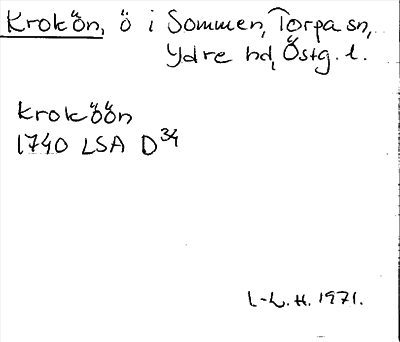 Krokön, ö i Sommen, Torpa sn,
Ydre hd, Östg. l.
Kroköön
1740 LSA D34
L-L. H. 1971.